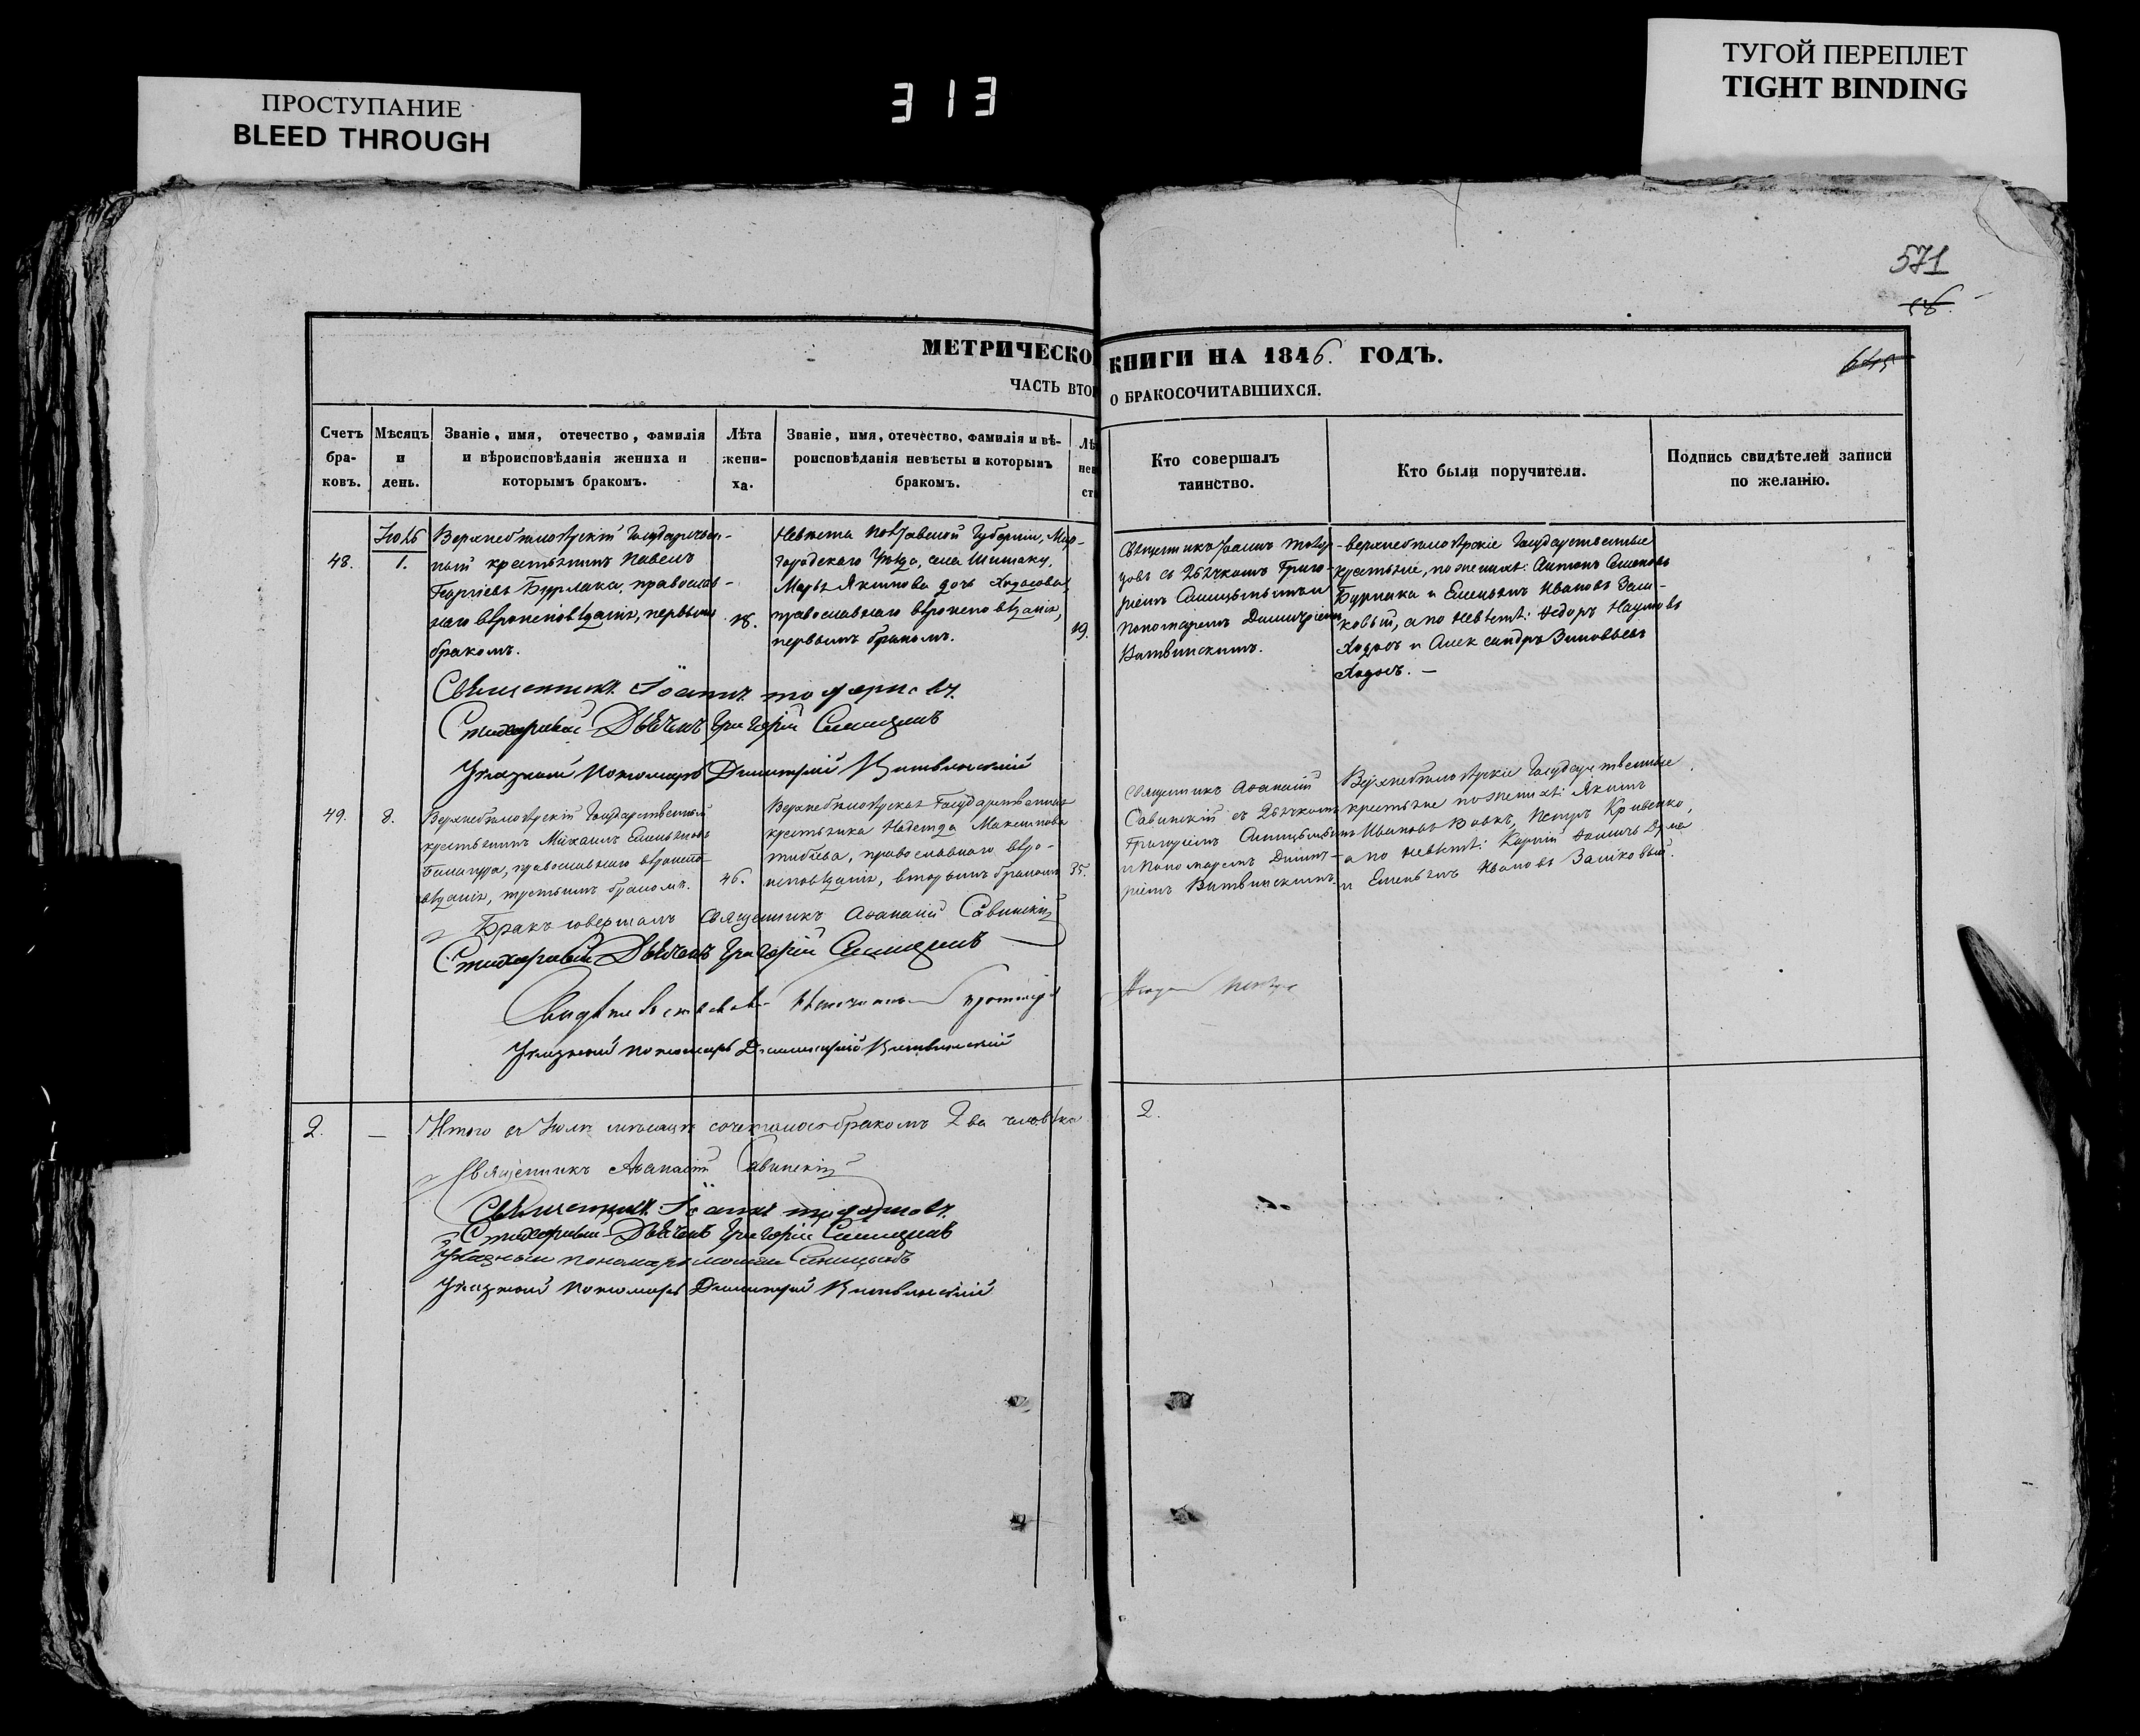 ПРОСТУПАНИЕ
BLEED THROUGH
313
ТУГОЙ ПЕРЕПЛЕТ
TIGHT BINDING
571
МЕТРИЧЕСКО КНИГИ НА 1846. ГОДЪ.
ЧАСТЬ ВТО О БРАКОСОЧИТАВШИХСЯ.
Счетъ бра-ковъ.
Мѣсяцъ и день.
Званіе, имя, отечество, фамилія
и вѣроисповѣданія жениха и
которымъ бракомъ.
Лѣта
жени-
ха.
Званіе, имя, отечество, фамилія и вѣ-
роисповѣданія невѣсты и которымъ
бракомъ.
Лѣ
нев
ст
Кто совершалъ
таинство.
Кто были поручители.
Подпись свидѣтелей записи
по желанію.
48.
1.
государствен-
ный крестьянинъ Павелъ
Георгіевъ Бурлака, православ-
наго вѣроисповѣданія, первымъ
бракомъ.
18.
Невѣста Полтавской Губерніи, Мир-
городскаго Уѣзда, села Шишаку,
Марья Якимова дочь
православнаго вѣроисповѣданія,
первымъ бракомъ.
19.
Священникъ Іоаннъ
съ дьячкомъ Григо-
ріемъ Синицынымъ и
Пономаремъ Димитріемъ
Витвинскимъ.
государственные
крестьяне, по женихѣ: Антонъ Семеновъ
Бурлака и Емельянъ Ивановъ Заи-
ковый, а по невѣстѣ: Ѳедоръ Наумовъ
Ходосъ и Александръ Зиновьевъ
Ходосъ. —
Священникъ Іоаннъ
Стихарный Дьячекъ Григорій Синицынъ
Указный Пономарь Димитрій Витвинскій
49.
8.
Государственный
крестьянинъ Михаилъ Емельяновъ
православнаго вѣроиспо-
вѣданія, третьимъ бракомъ.
46.
Государственная
крестьянка Надежда Максимова
православнаго вѣро-
исповѣданія, вторымъ бракомъ
35.
Священникъ Аѳанасій
Савинскій съ дьячкомъ
Григоріемъ Синицынымъ
и Пономаремъ Димит-
ріемъ Витвинскимъ.
Государственные
крестьяне по женихѣ: Якимъ
Ивановъ Вовкъ, Петръ Кривенко,
а по невѣстѣ:
и Емельянъ Ивановъ Заиковый.
Бракъ совершалъ Священникъ Аѳанасій Савинскій
Стихарный Дьячекъ Григорій Синицынъ
Указный Пономарь Димитрій Витвинскій
2. — Итого въ Іюлѣ мѣсяцѣ сочеталось бракомъ два человѣка 2.
Священникъ Аѳанасій Савинскій
Священникъ Іоаннъ
Стихарный Дьячекъ Григорій Синицынъ
Указный пономарь Синицынъ
Указный Пономарь Димитрій Витвинскій